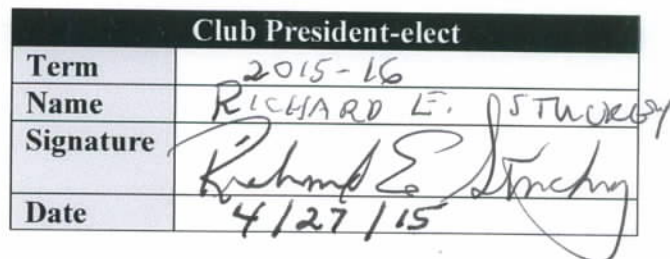 Club President-elect
Term 2015-16
Name RICHARD E.
Signature Richard E
Date 4/27/15